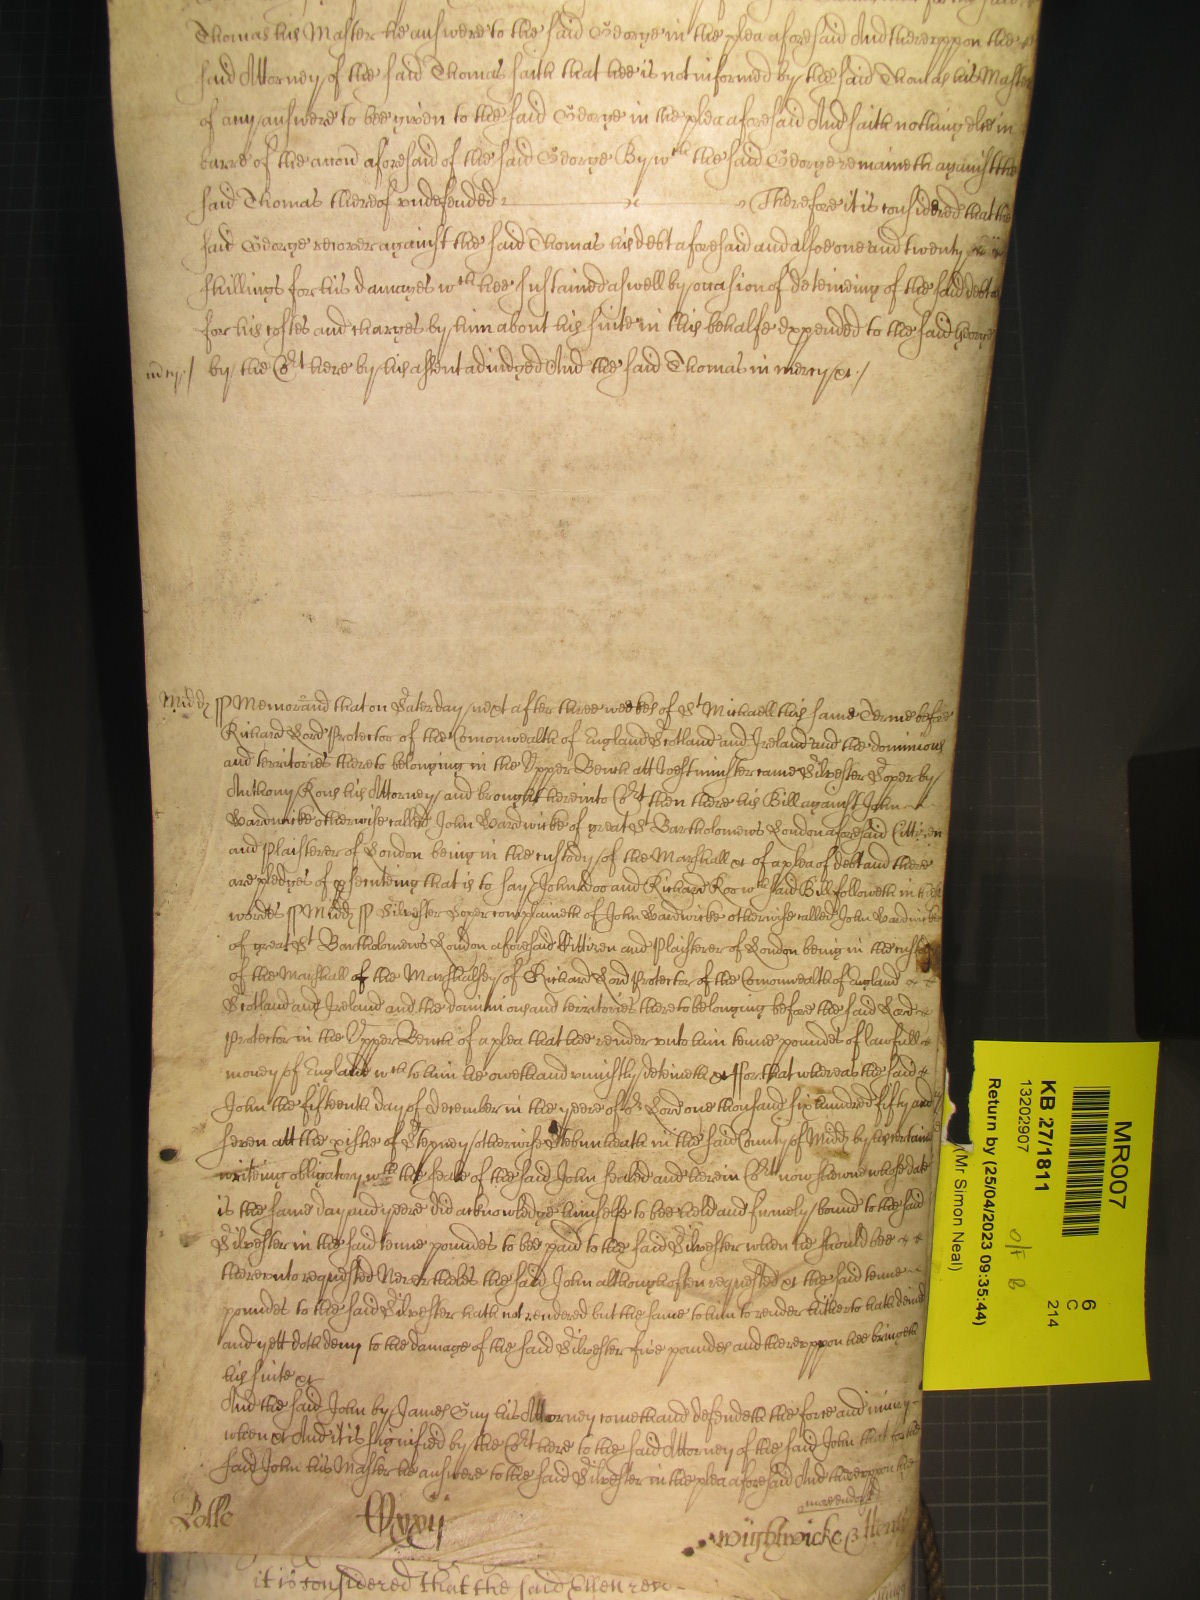 Thomas his Master he answere to the said George in the plea aforesaid And therevppon the
said Attorney of the said Thomas saith that hee is not informed by the said Thomas his Master
of any answere to bee given to the said George in the plea aforesaid And saith nothing else in
barre of the accon aforesaid of the said George By wch the said George remaineth against the
said Thomas thereof vndefended Therefore it is considered that the
said George recover against the said Thomas his debt aforesaid and alsoe one and twenty
shillings for his damages wch hee sustained aswell by occasion of deteineing of the said debt as
for his costes and charges by him about his suite in this behalfe expended to the said George
mercy / by the Cort here by his assent adiudged And the said Thomas in mercy &c /
Midd ss Memorand that on Saterday next after three weekes of St Michaell this same Terme before
Richard Lord Protector of the Comonwealth of England Scotland and Ireland and the dominions
and territories thereto belonging in the Vpper Bench att Westminster came Silvester Soper by
Anthony Rous his Attorney and brought here into Cort then there his Bill against John
Wardwicke otherwise called John Wardwicke of great St Bartholomews London aforesaid Cittizen
and Plaisterer of London being in the custody of the Marshall &c of a plea of debt and there
are pledges of psecuteing that is to say John Doo and Richard Roo wch said Bill followeth in these
wordes ss Midd ss Silvester Soper complaineth of John Wardwicke otherwise called John Wardwicke
of great St Bartholomews London aforesaid Cittizen and Plaisterer of London being in the custody
of the Marshall of the Marshalsey of Richard Lord Protector of the Comonwealth of England
Scotland and Ireland and the dominions and territories thereto belonging before the said Lord
Protector in the Vpper Bench of a plea that hee render vnto him tenne poundes of lawfull
money of England wch to him he oweth and vniustly deteineth &c For that whereas the said
John the fifteenth day of December in the yeere of or Lord one thousand six hundred fifty and
seven att the pishe of Stepney otherwise Stebunheath in the said County of Midd by his certaine
writeing obligatory wth the seale of the said John sealed and here in Cort now shewne whose date
is the same day and yeere did acknowledge himselfe to bee held and firmely bound to the said
Silvester in the said tenne poundes to bee paid to the said Silvester when he should bee
therevnto requested Neverthelesse the said John although often requested &c the said tenne
poundes to the said Silvester hath not rendered but the same to him to render hitherto hath denied
and yett doth deny to the damage of the said Silvester five poundes and therevppon hee bringeth
his suite &c
And the said John by James Guy his Attorney cometh and defendeth the force and iniury
when &c And it is signified by the Cort here to the said Attorney of the said John that for the
said John his Master he answere to the said Silvester in the plea aforesaid And therevppon the
more endorsed
Rolle
Wightwicke &
it is considered that the said Ellen reco
MR007
KB 27/1811
13202907
Return by (25/04/2023 09:35:44)
(Mr Simon Neal)
6
C
214